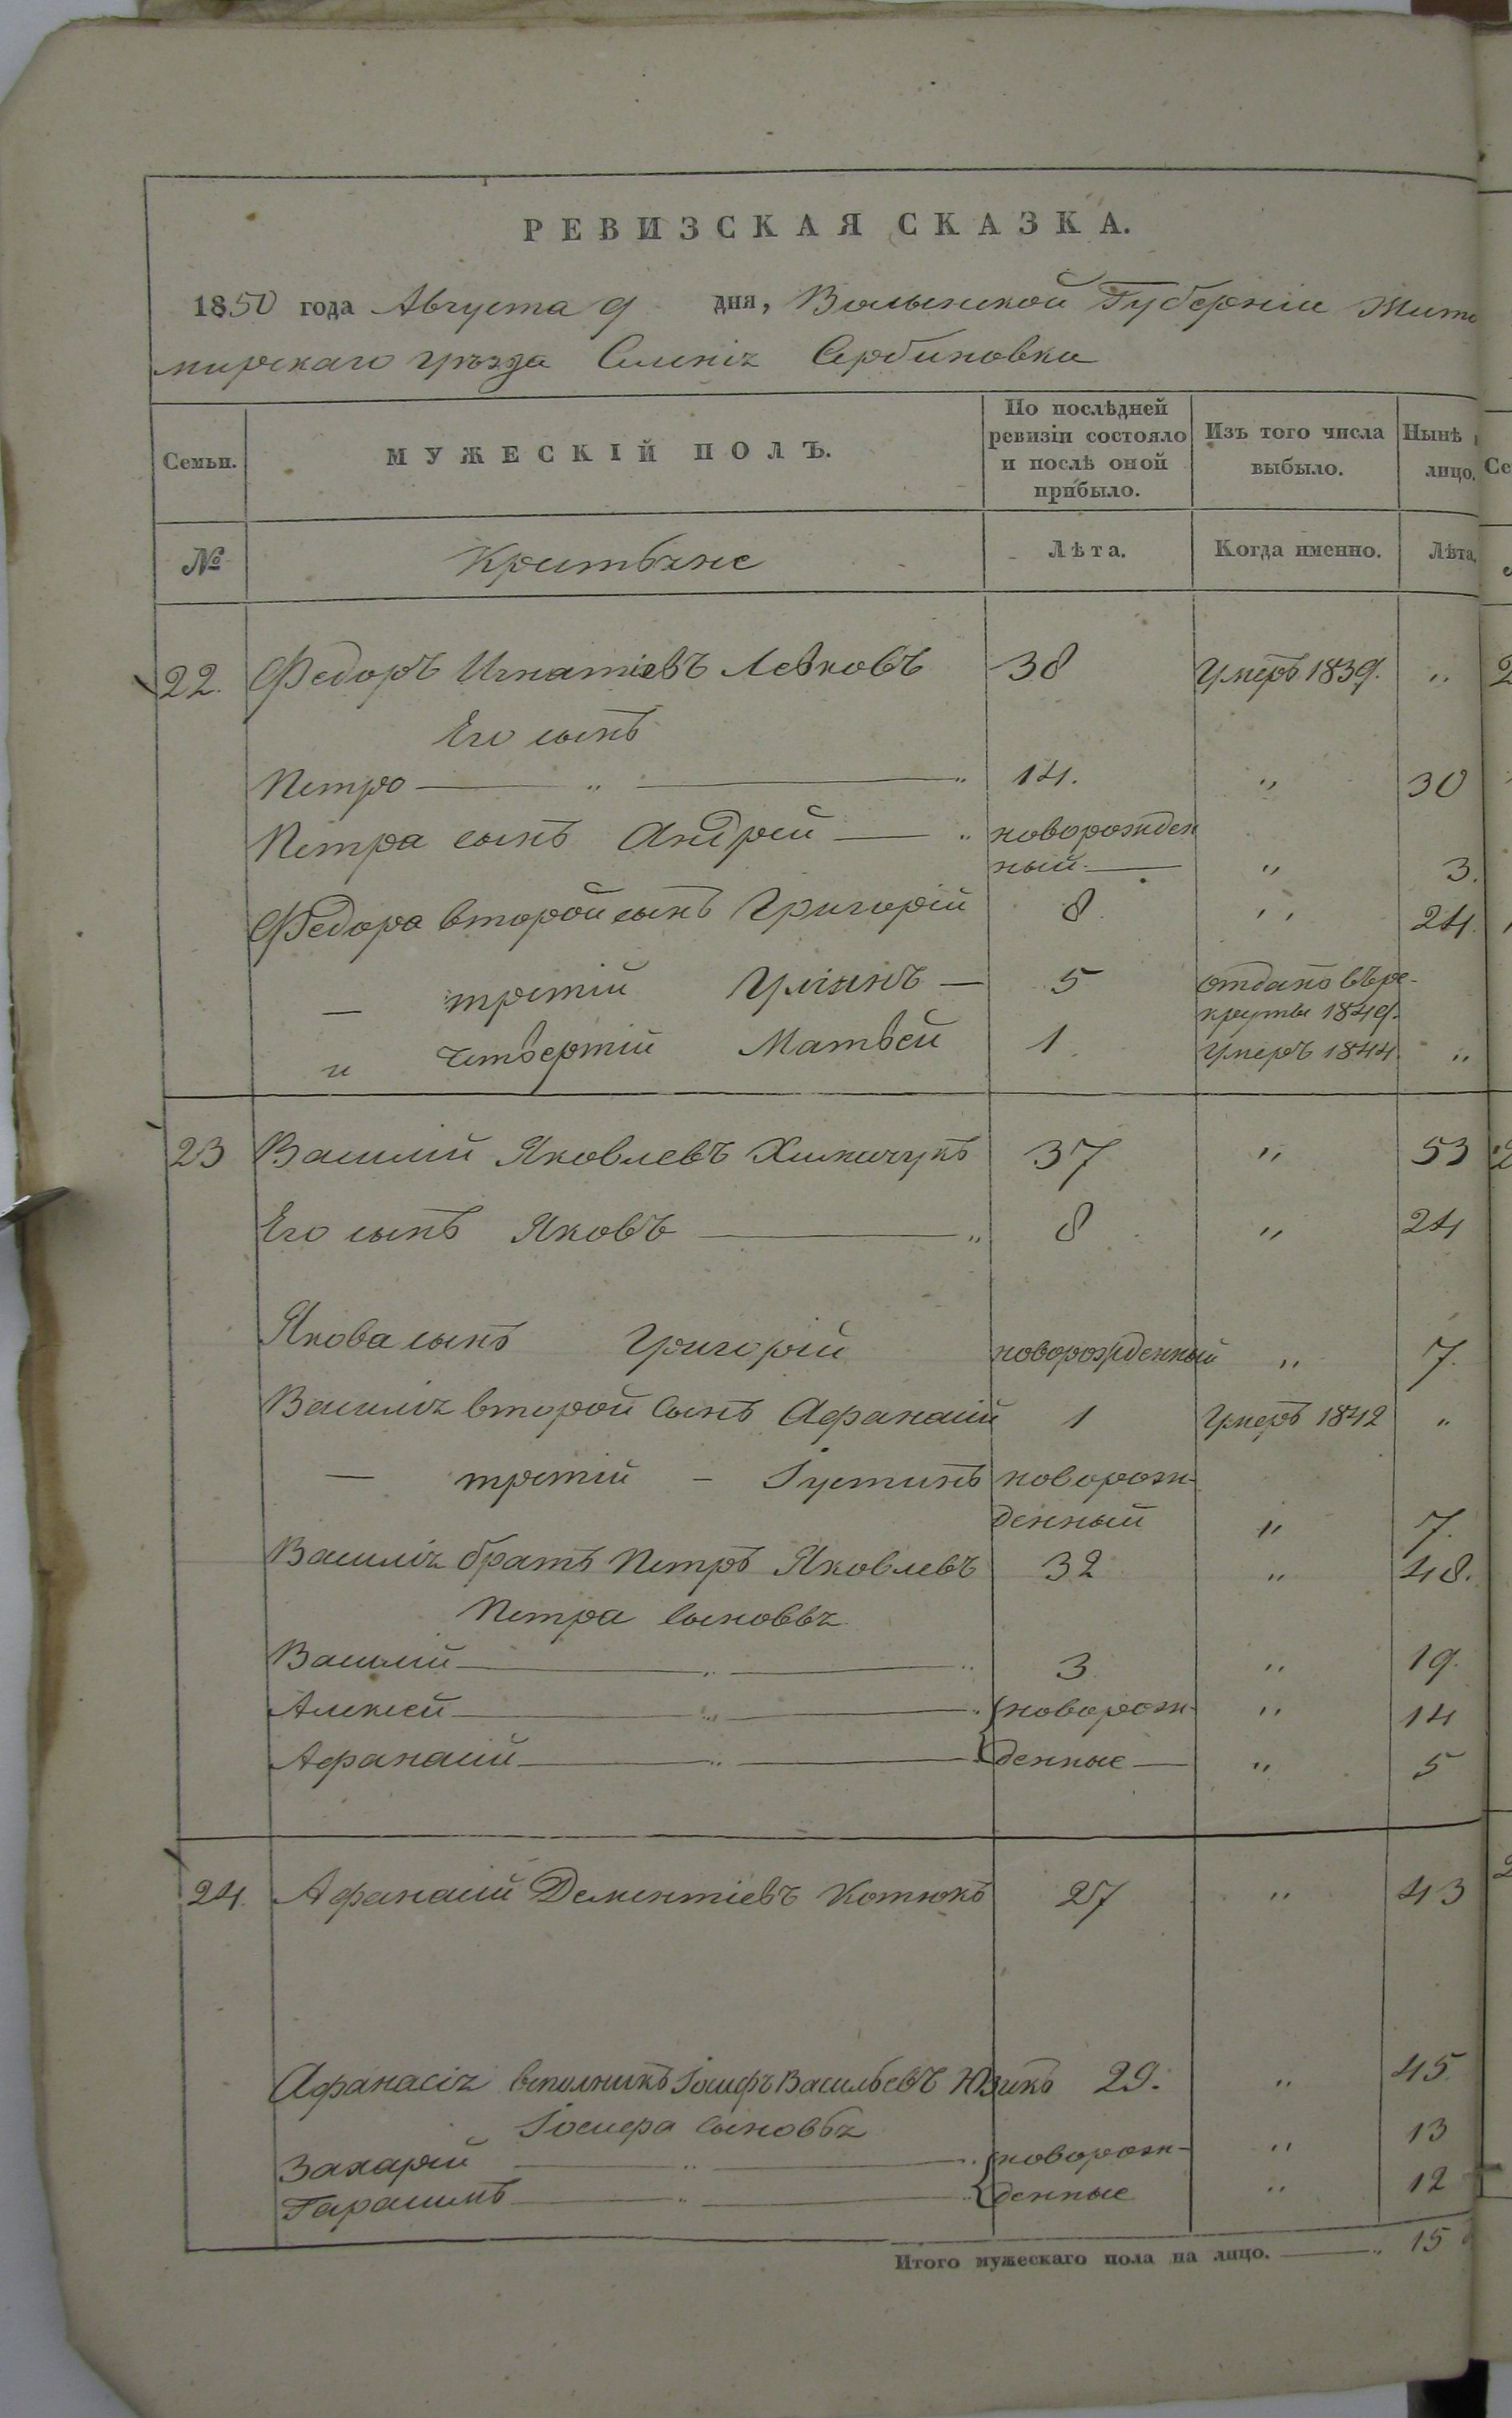 РЕВИЗСКАЯ СКАЗКА.
1850 года Августа 9 дня, Волынской Губерніи Жито
мирскаго уѣзда Селенія Сербиновки
Семьи.
МУЖЕСКІЙ ПОЛЪ.
По послѣдней ревизіи состояло и послѣ оной прибыло.
Изъ того числа выбыло.
Нынѣ
лицо.
№
Лѣта.
Когда именно.
Лѣта.
22. Федоръ Игнатіевъ Левковъ 38 Умеръ 1839. "
Его сынъ
Петро — " — " 14. " 30
Петра сынъ Андрей — " новорожден
ный. — " 3.
Федора второй сынъ Григорій 8. " 24.
— третій — 5 отданъ въ ре-
круты 1849.
" четвертій Матвей 1. Умеръ 1844. "
23 Василій Яковлевъ 37 " 53
Его сынъ Яковъ — " 8 " 24
Якова сынъ Григорій новорожденный " 7.
Василія второй сынъ Афанасій 1 Умеръ 1842 "
— третій – Іустинъ новорож-
денный " 7.
Василія братъ Петръ Яковлевъ 32 " 48.
Петра сыновья
Василій — " — " 3 " 19.
Алексей — " — " новорож- " 14
Афанасій — " — денные — " 5
24. Афанасій Дементіевъ Котюкъ 27 " 43
Афанасія вспольникъ Іосифъ Васильевъ Юзикъ 29. " 45
Іосифа сыновья
Захарій — " — " новорож- " 13
Гарасимъ — " — " денные " 12
Итого мужескаго пола на лицо. — " 15